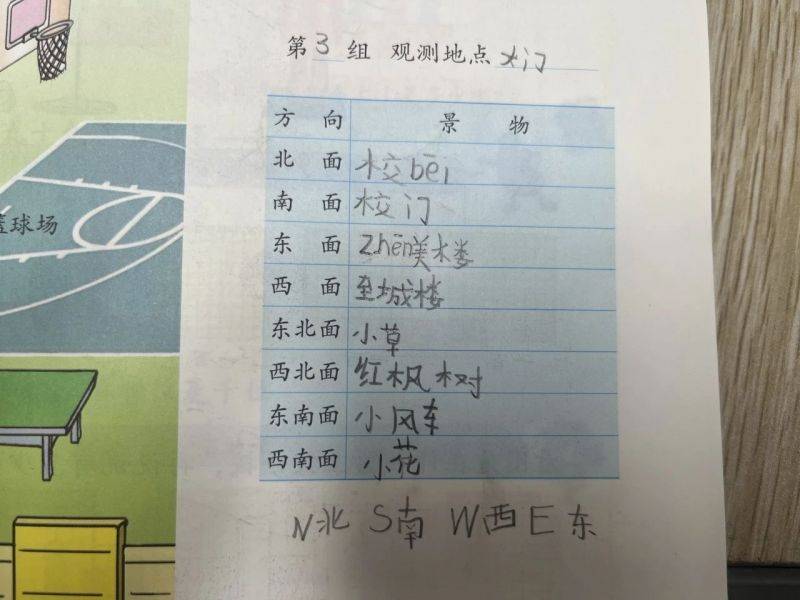 第3组 观测地点大门
方向 景物
北面 校bēi
南面 校门
东面 Zhēn美楼
西面 至城楼
东北面 小草
西北面 红枫树
东南面 小风车
西南面 小花
N北 S南 W西 E东
篮球场